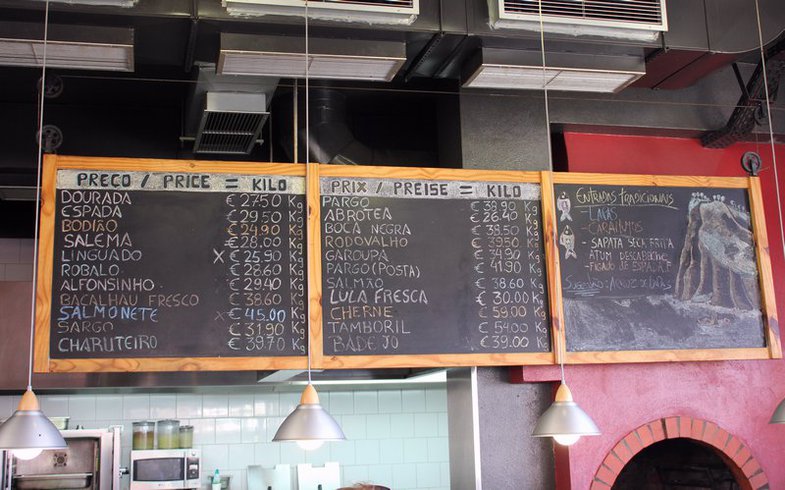 PREÇO / PRICE = KILO
DOURADA € 27.50 Kg
ESPADA € 29.50 Kg
BODIÃO € 24.90 Kg
SALEMA € 28.00 Kg
LINGUADO X € 25.90 Kg
ROBALO € 28.60 Kg
ALFONSINHO € 29.40 Kg
BACALHAU FRESCO € 38.60 Kg
SALMONETE X € 45.00 Kg
SARGO € 31.90 Kg
CHARUTEIRO € 39.70 Kg
PRIX / PREISE = KILO
PARGO € 38.90 Kg
ABROTEA € 26.40 Kg
BOCA NEGRA € 38.50 Kg
RODOVALHO € 39.50 Kg
GAROUPA € 34.90 Kg
PARGO (POSTA) € 41.90 Kg
SALMÃO € 38.60 Kg
LULA FRESCA € 30.00 Kg
CHERNE € 59.00 Kg
TAMBORIL € 54.00 Kg
BADEJO € 39.00 Kg
ENTRADAS TRADICIONAIS
- LAPAS
- CARAMUJOS
- SAPATA SECA FRITA
ATUM
- FIGADO DE ESPADA